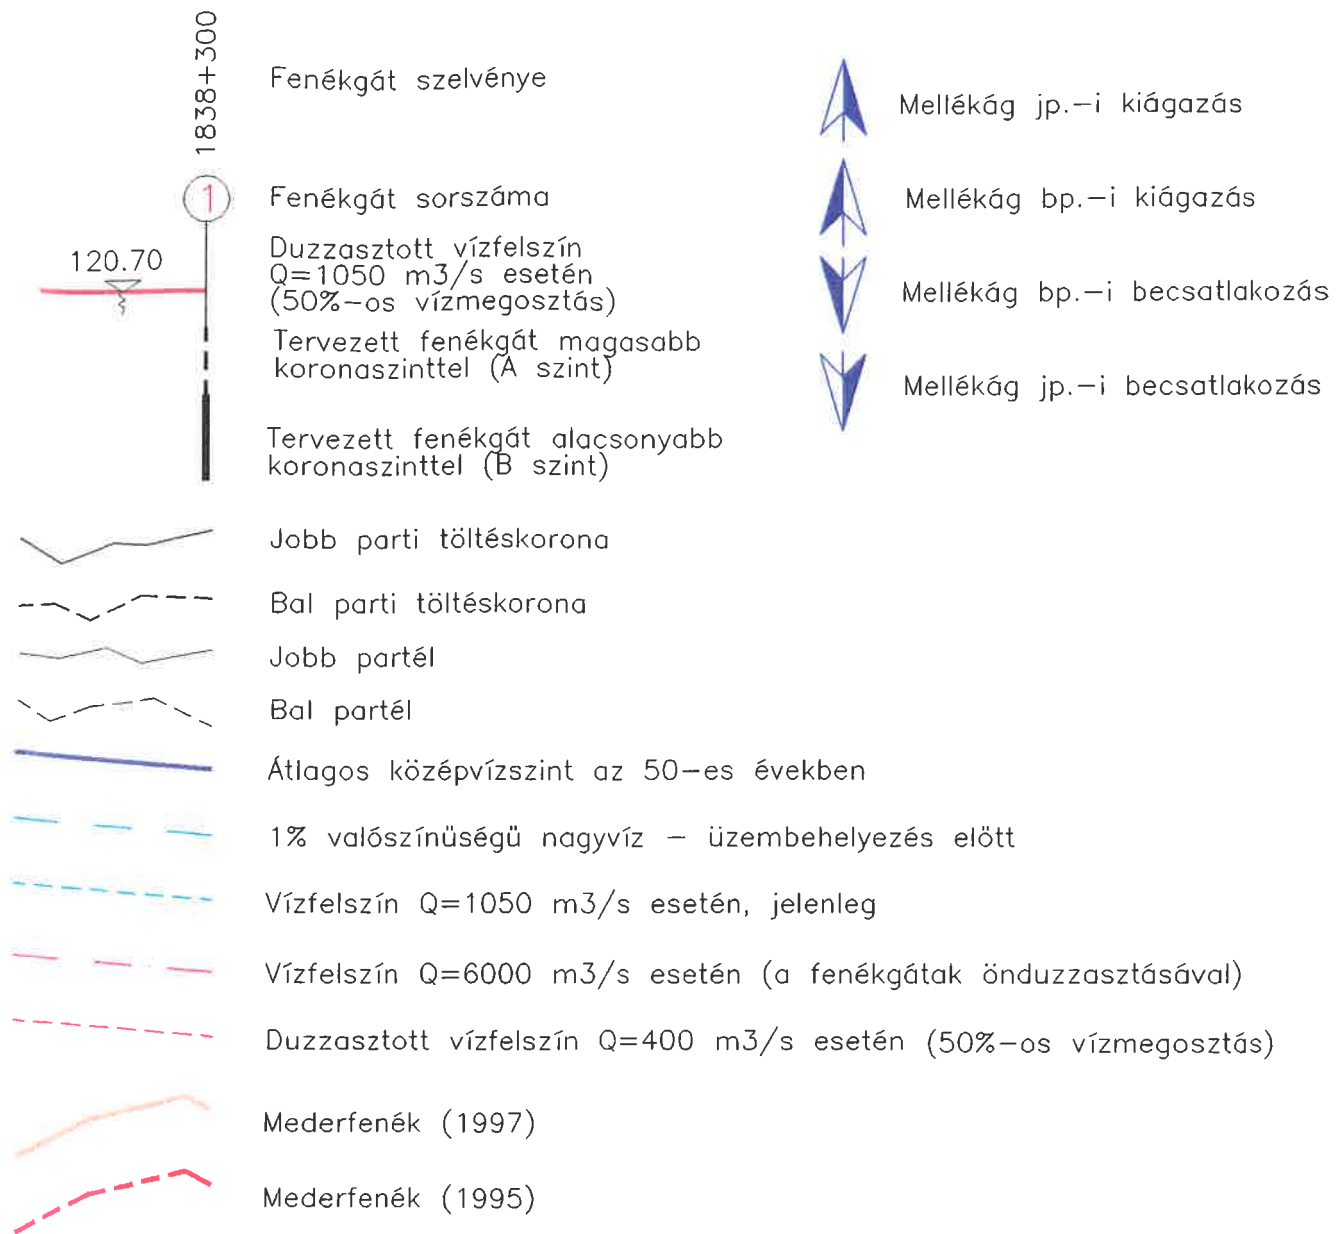 1838+300
Fenékgát szelvénye
1
Fenékgát sorszáma
120.70
Duzzasztott vízfelszín
Q=1050 m3/s esetén
(50%-os vízmegosztás)
Tervezett fenékgát magasabb
koronaszinttel (A szint)
Tervezett fenékgát alacsonyabb
koronaszinttel (B szint)
Jobb parti töltéskorona
Bal parti töltéskorona
Jobb partél
Bal partél
Átlagos középvízszint az 50-es években
1% valószínüségü nagyvíz - üzembehelyezés elött
Vízfelszín Q=1050 m3/s esetén, jelenleg
Vízfelszín Q=6000 m3/s esetén (a fenékgátak önduzzasztásával)
Duzzasztott vízfelszín Q=400 m3/s esetén (50%-os vízmegosztás)
Mederfenék (1997)
Mederfenék (1995)
Mellékág jp.-i kiágazás
Mellékág bp.-i kiágazás
Mellékág bp.-i becsatlakozás
Mellékág jp.-i becsatlakozás